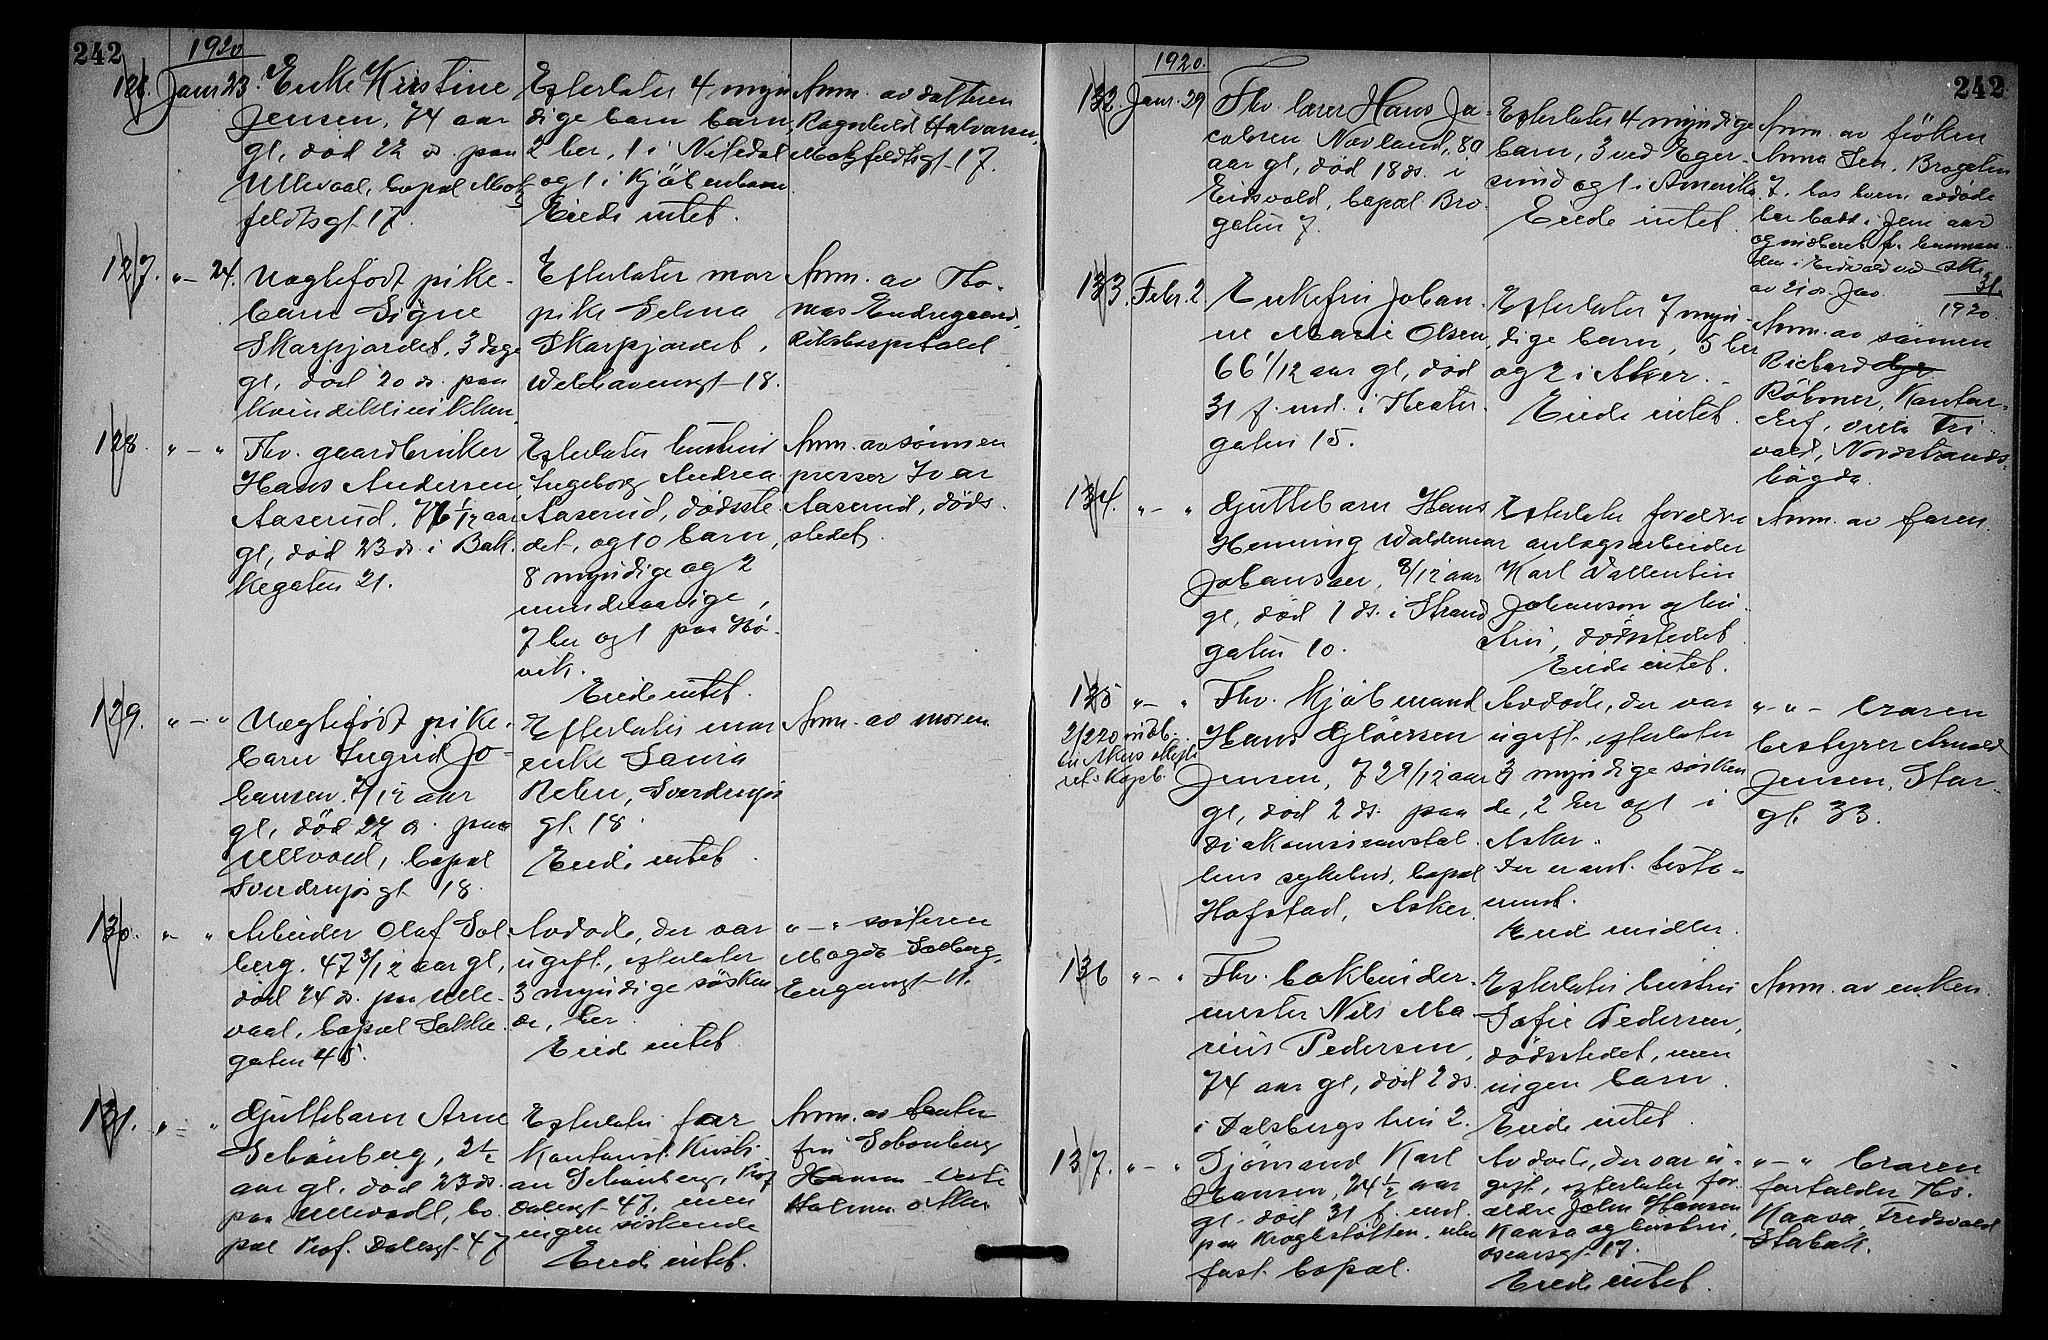 242
1920
126. Janr 23. Enke Kirstine
Jensen, 74 aar
gl, død 22 ds. paa
Ullevaal, bopæl Motz
feldtsgt 17.
Efterlater 4 myn
dige barn barn,
2 her, 1 i Nitedal
og 1 i Kjøbenhavn.
Eiede intet.
Anm. av datteren
Ragnhild Halvorsen,
Motzfeldtsgt 17.
127. " - 24. Uægtefødt pike-
barn Signe
Skarpjordet, 3 dage
gl, død 20 ds. paa
Kvindeklinikken
Efterlater mor
pike Selma
Skarpjordet,
Welhavensgt 18.
Anm. av Tho-
mas Endregaard,
Rikshospitalet
128. " - " Fhv. gaardbruker
Hans Andersen
Aaserud, 76 1/12 aar
gl, død 23 ds. i Bak-
kegaten 21.
Efterlater hustru
Ingeborg Andrea
Aaserud, dødsste
det, og 10 barn,
8 myndige og 2
umindreaarige,
7 her og 1 paa Hø-
vik.
Eiede intet.
Anm. av sønnen
presser Ivar
Aaserud, døds-
stedet.
129. " - " Uægtefødt pike-
barn Ingrid Jo-
hansen, 7/12 aar
gl, død 22 ds. paa
Ullevaal, bopæl
Sverdrupsgt 18.
Efterlater mor
enke Laura
Sverdrups
gt. 18.
Eiede intet.
Anm. av moren
130. " - " Arbeider Olaf Sol-
berg, 47 3/12 aar gl,
død 24 ds. paa Ulle-
vaal, bopæl Bakke-
gaten 45.
Avdøde, der var
ugift, efterlater
3 myndige søsken
de, her.
Eiede intet.
" - " søsteren
Magda Solberg,
Eugensgt 11.
131. " - " Guttebarn Arne
Schönberg, 2 1/2
aar gl, død 23 ds.
paa Ullevaal, bo-
pæl Prof. Dahlsgt 47
Efterlater far
Kontorist Kristi-
an Schönberg, Prof
Dahlsgt 47, men
ingen søskende
Eiede intet.
Anm. av tanten
fru Schönberg
Hansen
Holmen, Aker
1920.
242
132. Janr. 29 Fhv. lærer Hans Ja-
cobsen Novland, 80
aar gl, død 18 ds. i
Eidsvold, bopæl Bro-
gaten 7.
Efterlater 4 myndige
barn, 3 ved Eger-
sund og 1 i Amerika
Eiede intet
Anm. av frøken
Anna Brogaten
7, hos hvem avdøde
har bodd i flere aar
og indberet fr. lensman-
den i Eidsvold ved skr.
av 21 ds. Jno. 31/1920.
133. Febr. 2. Enkefru Johan-
ne Marie Olsen,
66 1/12 aar gl, død
31 f. md. i Theater-
gaten 15.
Efterlater 7 myn-
dige barn, 5 her
og 2 i Aker.
Eiede intet.
Anm. av sønnen
Richard
Röhmer, Kontor-
chef, villa Fri-
vold, Nordstrands-
høgda.
134. " - " Guttebarn Hans
Henning Waldemar
Johansen, 8/12 aar
gl, død 1 ds. i Strand
gaten 10.
Efterlater forældre
anlægsarbeider
Karl Vallentin
Johanson og hu-
stru, dødsstedet.
Eiede intet.
Anm. av faren.
135 " - " Fhv. Kjøbmand
Hans Gløersen
Jensen, 72 9/12 aar
gl, død 2 ds. paa
Diakonissenstal-
tens sykehus, bopæl
Hofstad, Asker.
2/2 20 indb.
til Akers skifte
ret
Avdøde, der var
ugift, efterlater
3 myndige søsken
de, 2 her og 1 i
Asker.
Der er ant. testa-
ment.
Eiede midler.
" - " broren
bestyrer Arnold
Jensen, Stor-
gt. 33.
136 " - " Fhv. bokbinder-
mester Nils Ma-
rius Pedersen,
74 aar gl, død 2 ds.
i Dalsbergs trin 2.
Efterlater hustru
Sofie Pedersen,
dødsstedet, men
ingen barn.
Eiede intet.
Anm. av enken
137. " - " Sjømand Karl
Hansen, 24 1/2 aar
gl, død 31 f. md.
paa Krogstøtten, uten
fast bopæl.
Avdøde, der var u-
gift, efterlater for-
ældre John Hansen
Kaasa og hustru,
Oscarsgt 17.
Eiede intet.
" - " broren
forfatter Hs.
Kaasa, Fredsvold
Stabæk.